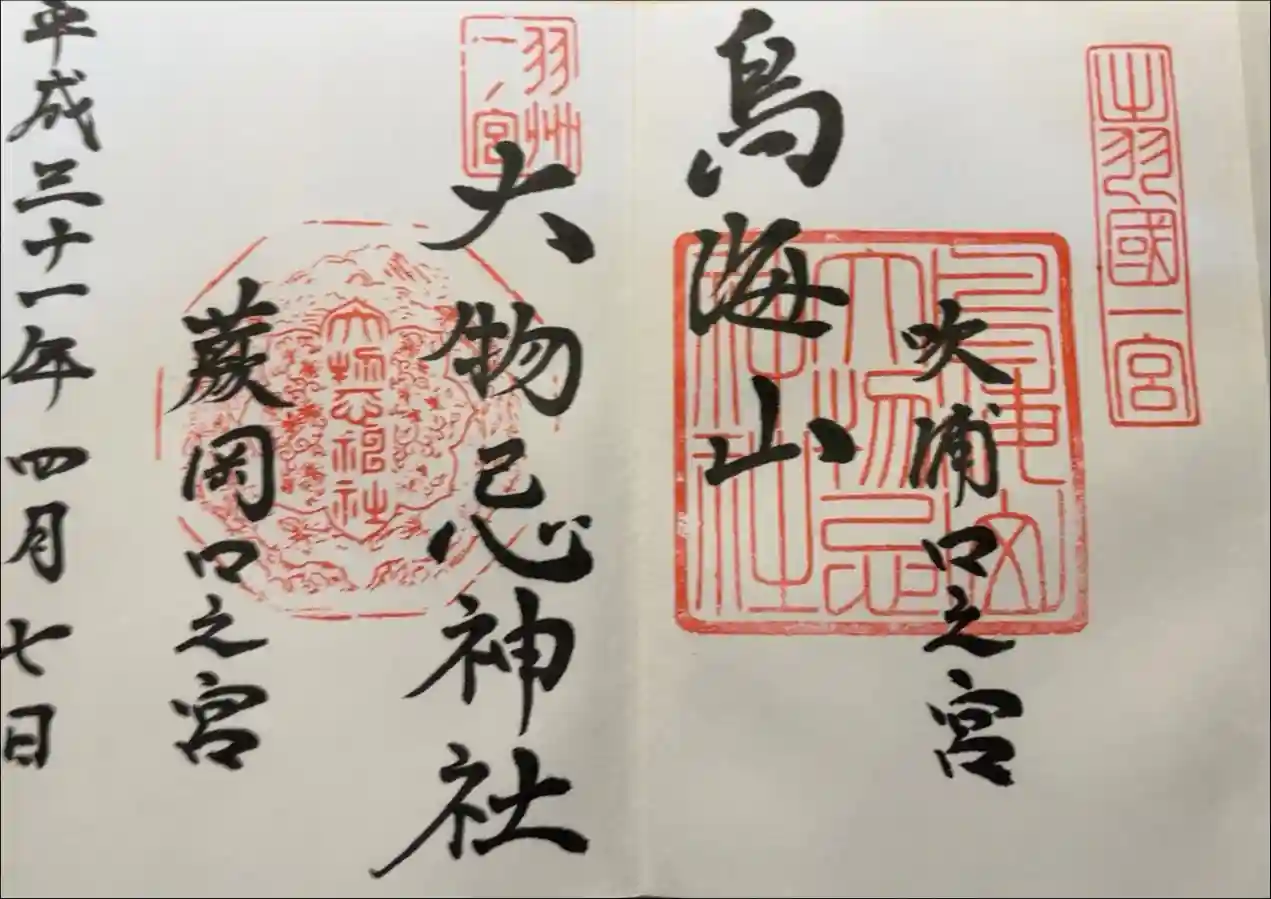 出羽國一宮
吹浦口之宮
鳥海山
大物忌
神社
羽州
一ノ宮
大物忌神社
大物忌神社
蕨岡口之宮
平成三十一年四月七日